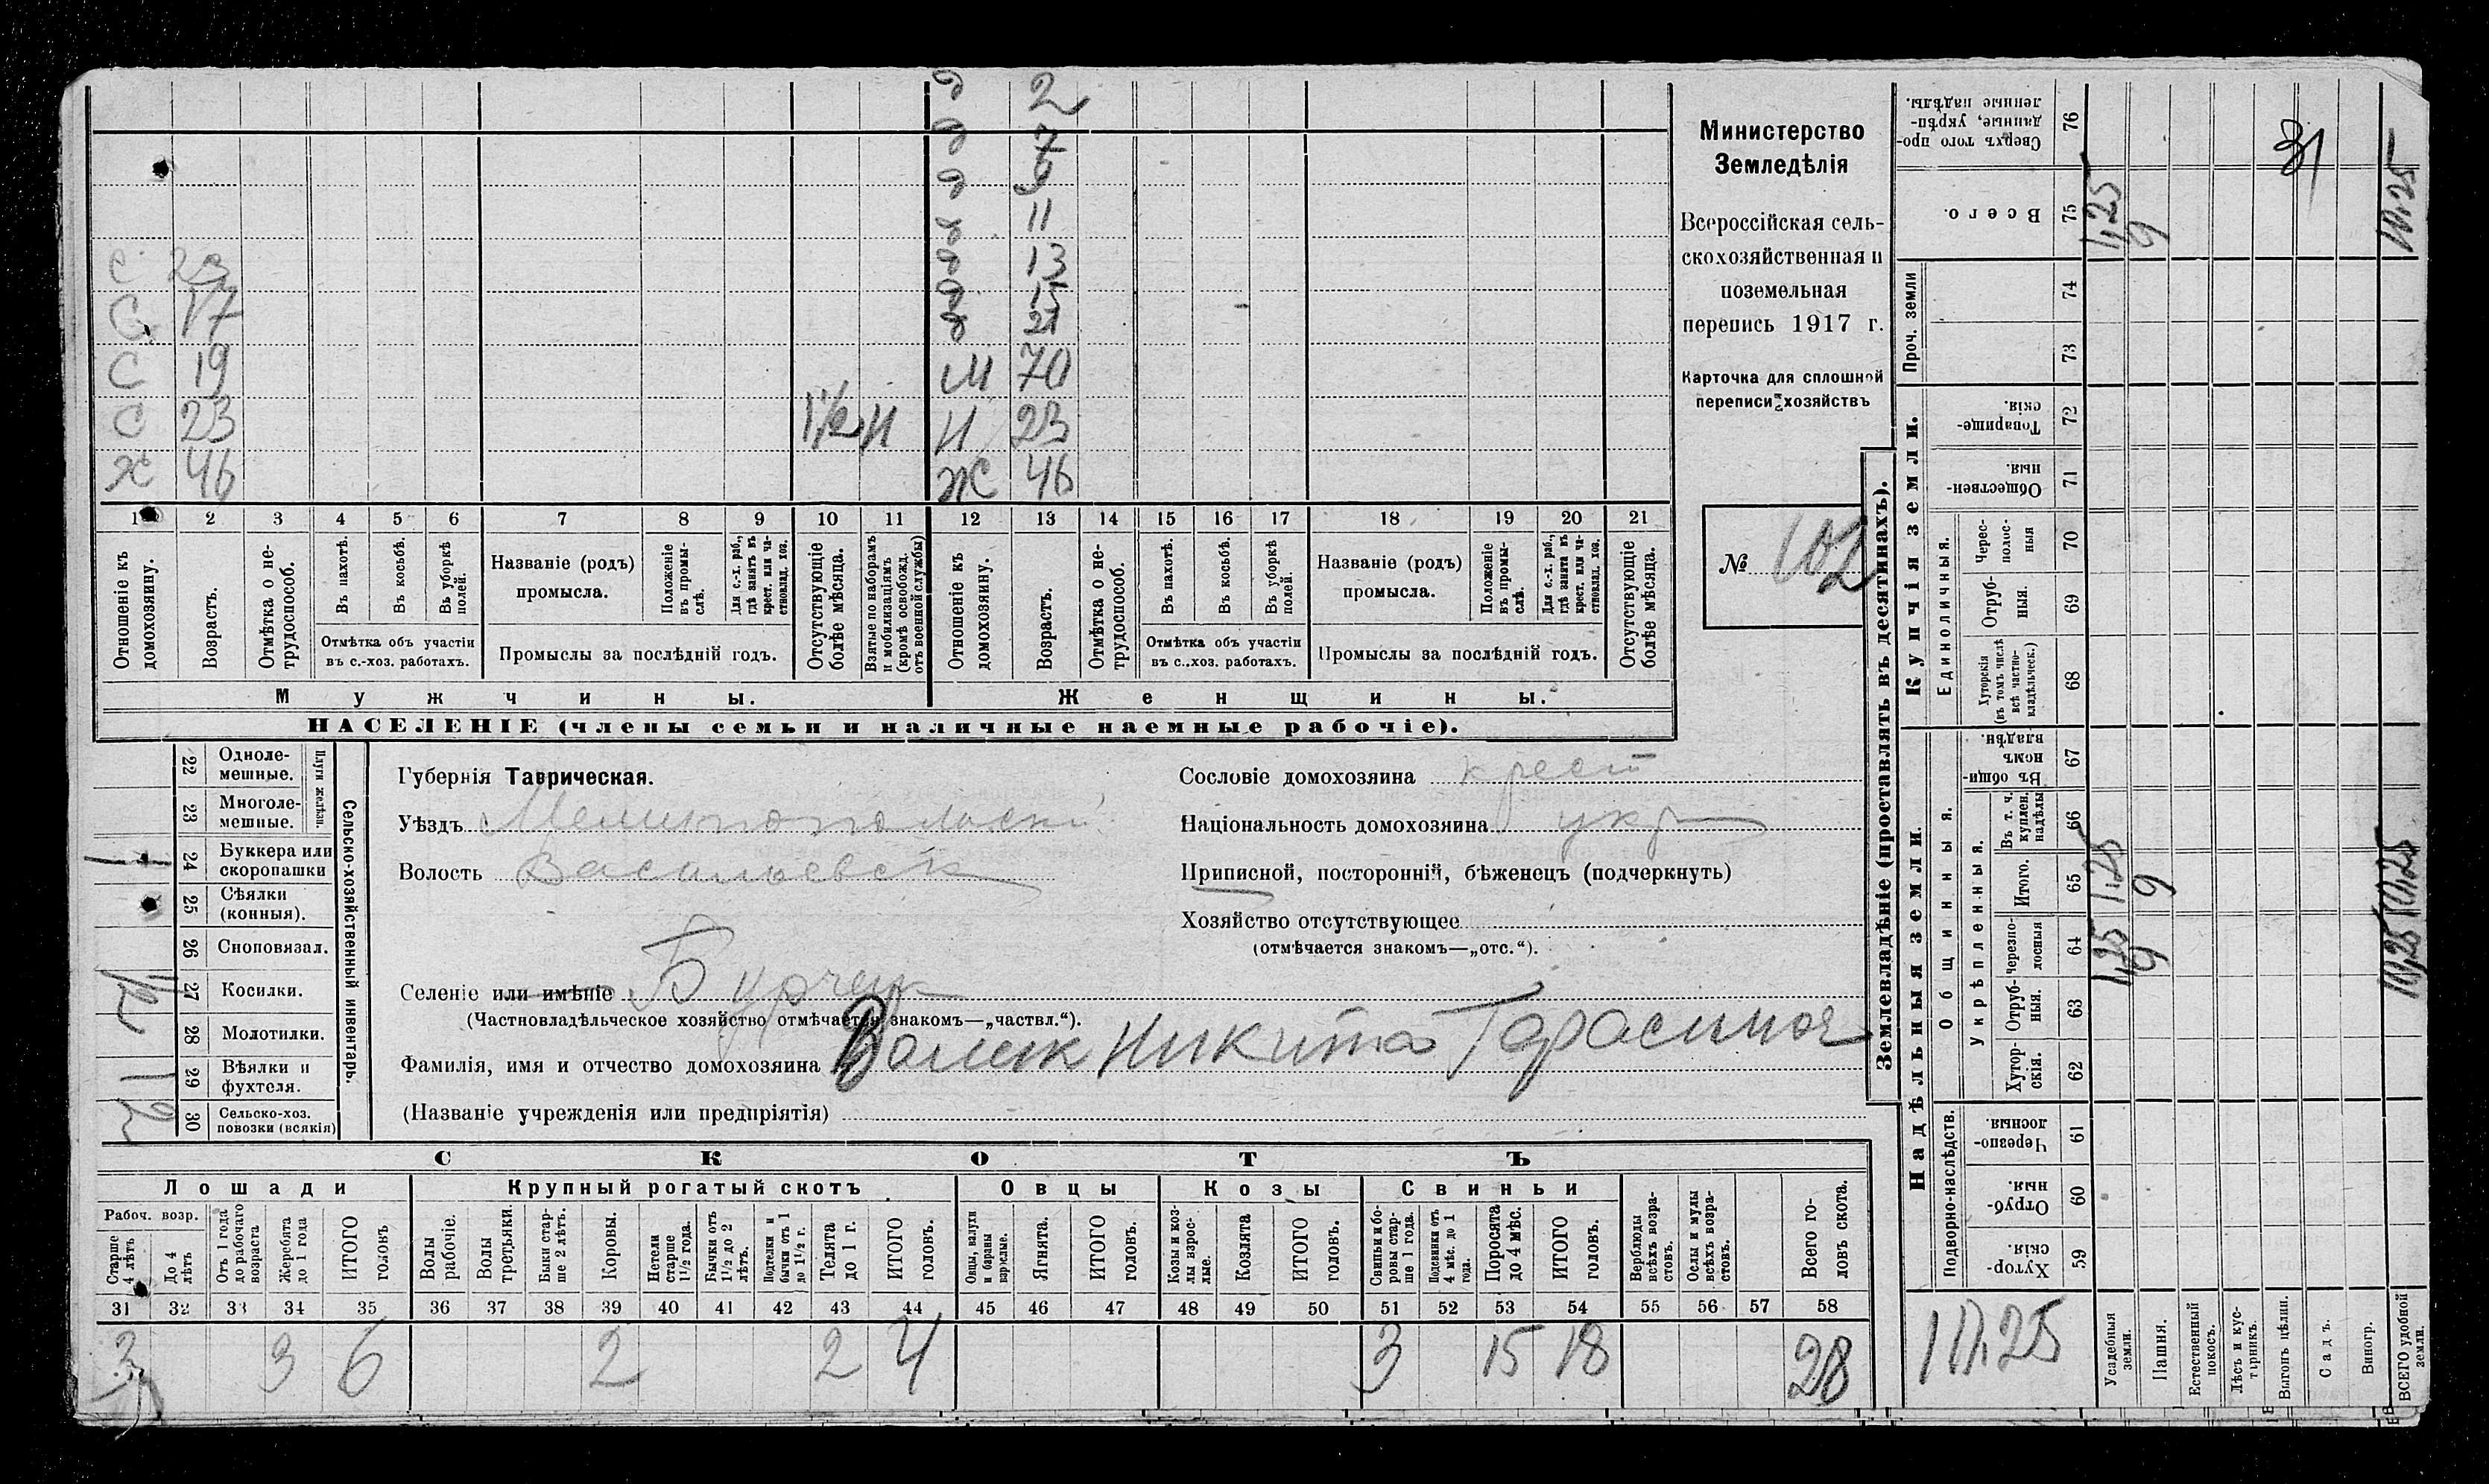 д 2
д 7
д 9
д 11
С 23 д 13
С 17 д 15
д 21
С 19 М 70
С 23 1½ Н Н 23
Х 46 Ж 46
1 2 3 4 5 6 7 8 9 10 11 12 13 14 15 16 17 18 19 20 21
Отношеніе къ домохозяину.
Возрастъ.
Отмѣтка о нетрудоспособ.
Въ пахотѣ.
Въ косьбѣ.
Въ уборкѣ полей.
Отмѣтка объ участіи
въ с.-хоз. работахъ.
Названіе (родъ)
промысла.
Положеніе въ промыслѣ.
Для с.-х. раб., гдѣ занятъ въ крест. или частновлад. хоз.
Промыслы за послѣдній годъ.
Отсутствующіе болѣе мѣсяца.
Взятые по наборамъ и мобилизаціямъ (кромѣ освобожд. отъ военной службы)
Отношеніе къ домохозяину.
Возрастъ.
Отмѣтка о нетрудоспособ.
Въ пахотѣ.
Въ косьбѣ.
Въ уборкѣ полей.
Отмѣтка объ участіи
въ с.-хоз. работахъ.
Названіе (родъ)
промысла.
Положеніе въ промыслѣ.
Для с.-х. раб., гдѣ занята въ крест. или частновлад. хоз.
Промыслы за послѣдній годъ.
Отсутствующіе болѣе мѣсяца.
Мужчины.
Женщины.
НАСЕЛЕНІЕ (члены семьи и наличные наемные рабочіе).
Министерство
Земледѣлія
Всероссійская сель-
скохозяйственная и
поземельная
перепись 1917 г.
Карточка для сплошной
переписи хозяйствъ
№ 102
22 Одноле-
мешные.
23 Многоле-
мешные.
Плуги желѣзн.
1 24 Буккера или
скоропашки
25 Сѣялки
(конныя).
26 Сноповязал.
27 Косилки.
28 Молотилки.
1 29 Вѣялки и
фухтеля.
2 30 Сельско-хоз.
повозки (всякія)
Сельско-хозяйственный инвентарь.
Губернія Таврическая.
Уѣздъ Мелитопольскій
Волость Васильевск
Селеніе или имѣніе Бурчак
(Частновладѣльческое хозяйство отмѣчается знакомъ—„частвл.“).
Фамилія, имя и отчество домохозяина Волик Никита Тарасинов
(Названіе учрежденія или предпріятія)
Сословіе домохозяина крест
Національность домохозяина укр
Приписной, посторонній, бѣженецъ (подчеркнуть)
Хозяйство отсутствующее
(отмѣчается знакомъ—„отс.“).
СКОТЪ
Лошади
Крупный рогатый скотъ
Овцы
Козы
Свиньи
Рабоч. возр.
Старше 4 лѣтъ
До 4 лѣтъ
Отъ 1 года до рабочаго возраста
Жеребята до 1 года
ИТОГО головъ
Волы рабочіе.
Волы третьяки.
Быки старше 2 лѣтъ.
Коровы.
Нетели старше 1½ года.
Бычки отъ 1½ до 2 лѣтъ.
Подтелки и бычки отъ 1 до 1½ г.
Телята до 1 г.
ИТОГО головъ.
Овцы, валухи и бараны взрослые.
Ягнята.
ИТОГО головъ.
Козы и козлы взрослые.
Козлята
ИТОГО головъ.
Свиньи и боровы старше 1 года.
Подсвинки отъ 4 мѣс. до 1 года.
Поросята до 4 мѣс.
ИТОГО головъ.
Верблюды всѣхъ возрастовъ.
Ослы и мулы всѣхъ возрастовъ.
Всего головъ скота.
31 32 33 34 35 36 37 38 39 40 41 42 43 44 45 46 47 48 49 50 51 52 53 54 55 56 57 58
3 3 6 2 2 4 3 15 18 28
Землевладѣніе (проставлять въ десятинахъ).
Надѣльныя земли.
Купчія земли.
Проч. земли
Подворно-наслѣдств.
Общинныя.
Укрѣпленныя.
Единоличныя.
Хуторскія 59
Отрубныя. 60
Черезполосныя. 61
Хуторскія. 62
Отрубныя. 63
Черезполосныя 64
Итого. 65
Въ т. ч. куплен. надѣлы 66
Въ общинномъ владѣн. 67
Хуторскія (въ томъ числѣ всѣ частновладѣльческ.) 68
Отрубныя. 69
Черезполосныя 70
Общественныя. 71
Товарищескія. 72
73
74
Всего. 75
Сверхъ того проданные, укрѣпленные надѣлы. 76
10,25
Усадебныя земли. 1,25 1,25 1,25
Пашня. 9 9 9
Естественный покосъ.
Лѣсъ и кустарникъ.
Выгонъ цѣлин.
Садъ.
Виногр.
ВСЕГО удобной земли. 10,25 10,25 10,25
31